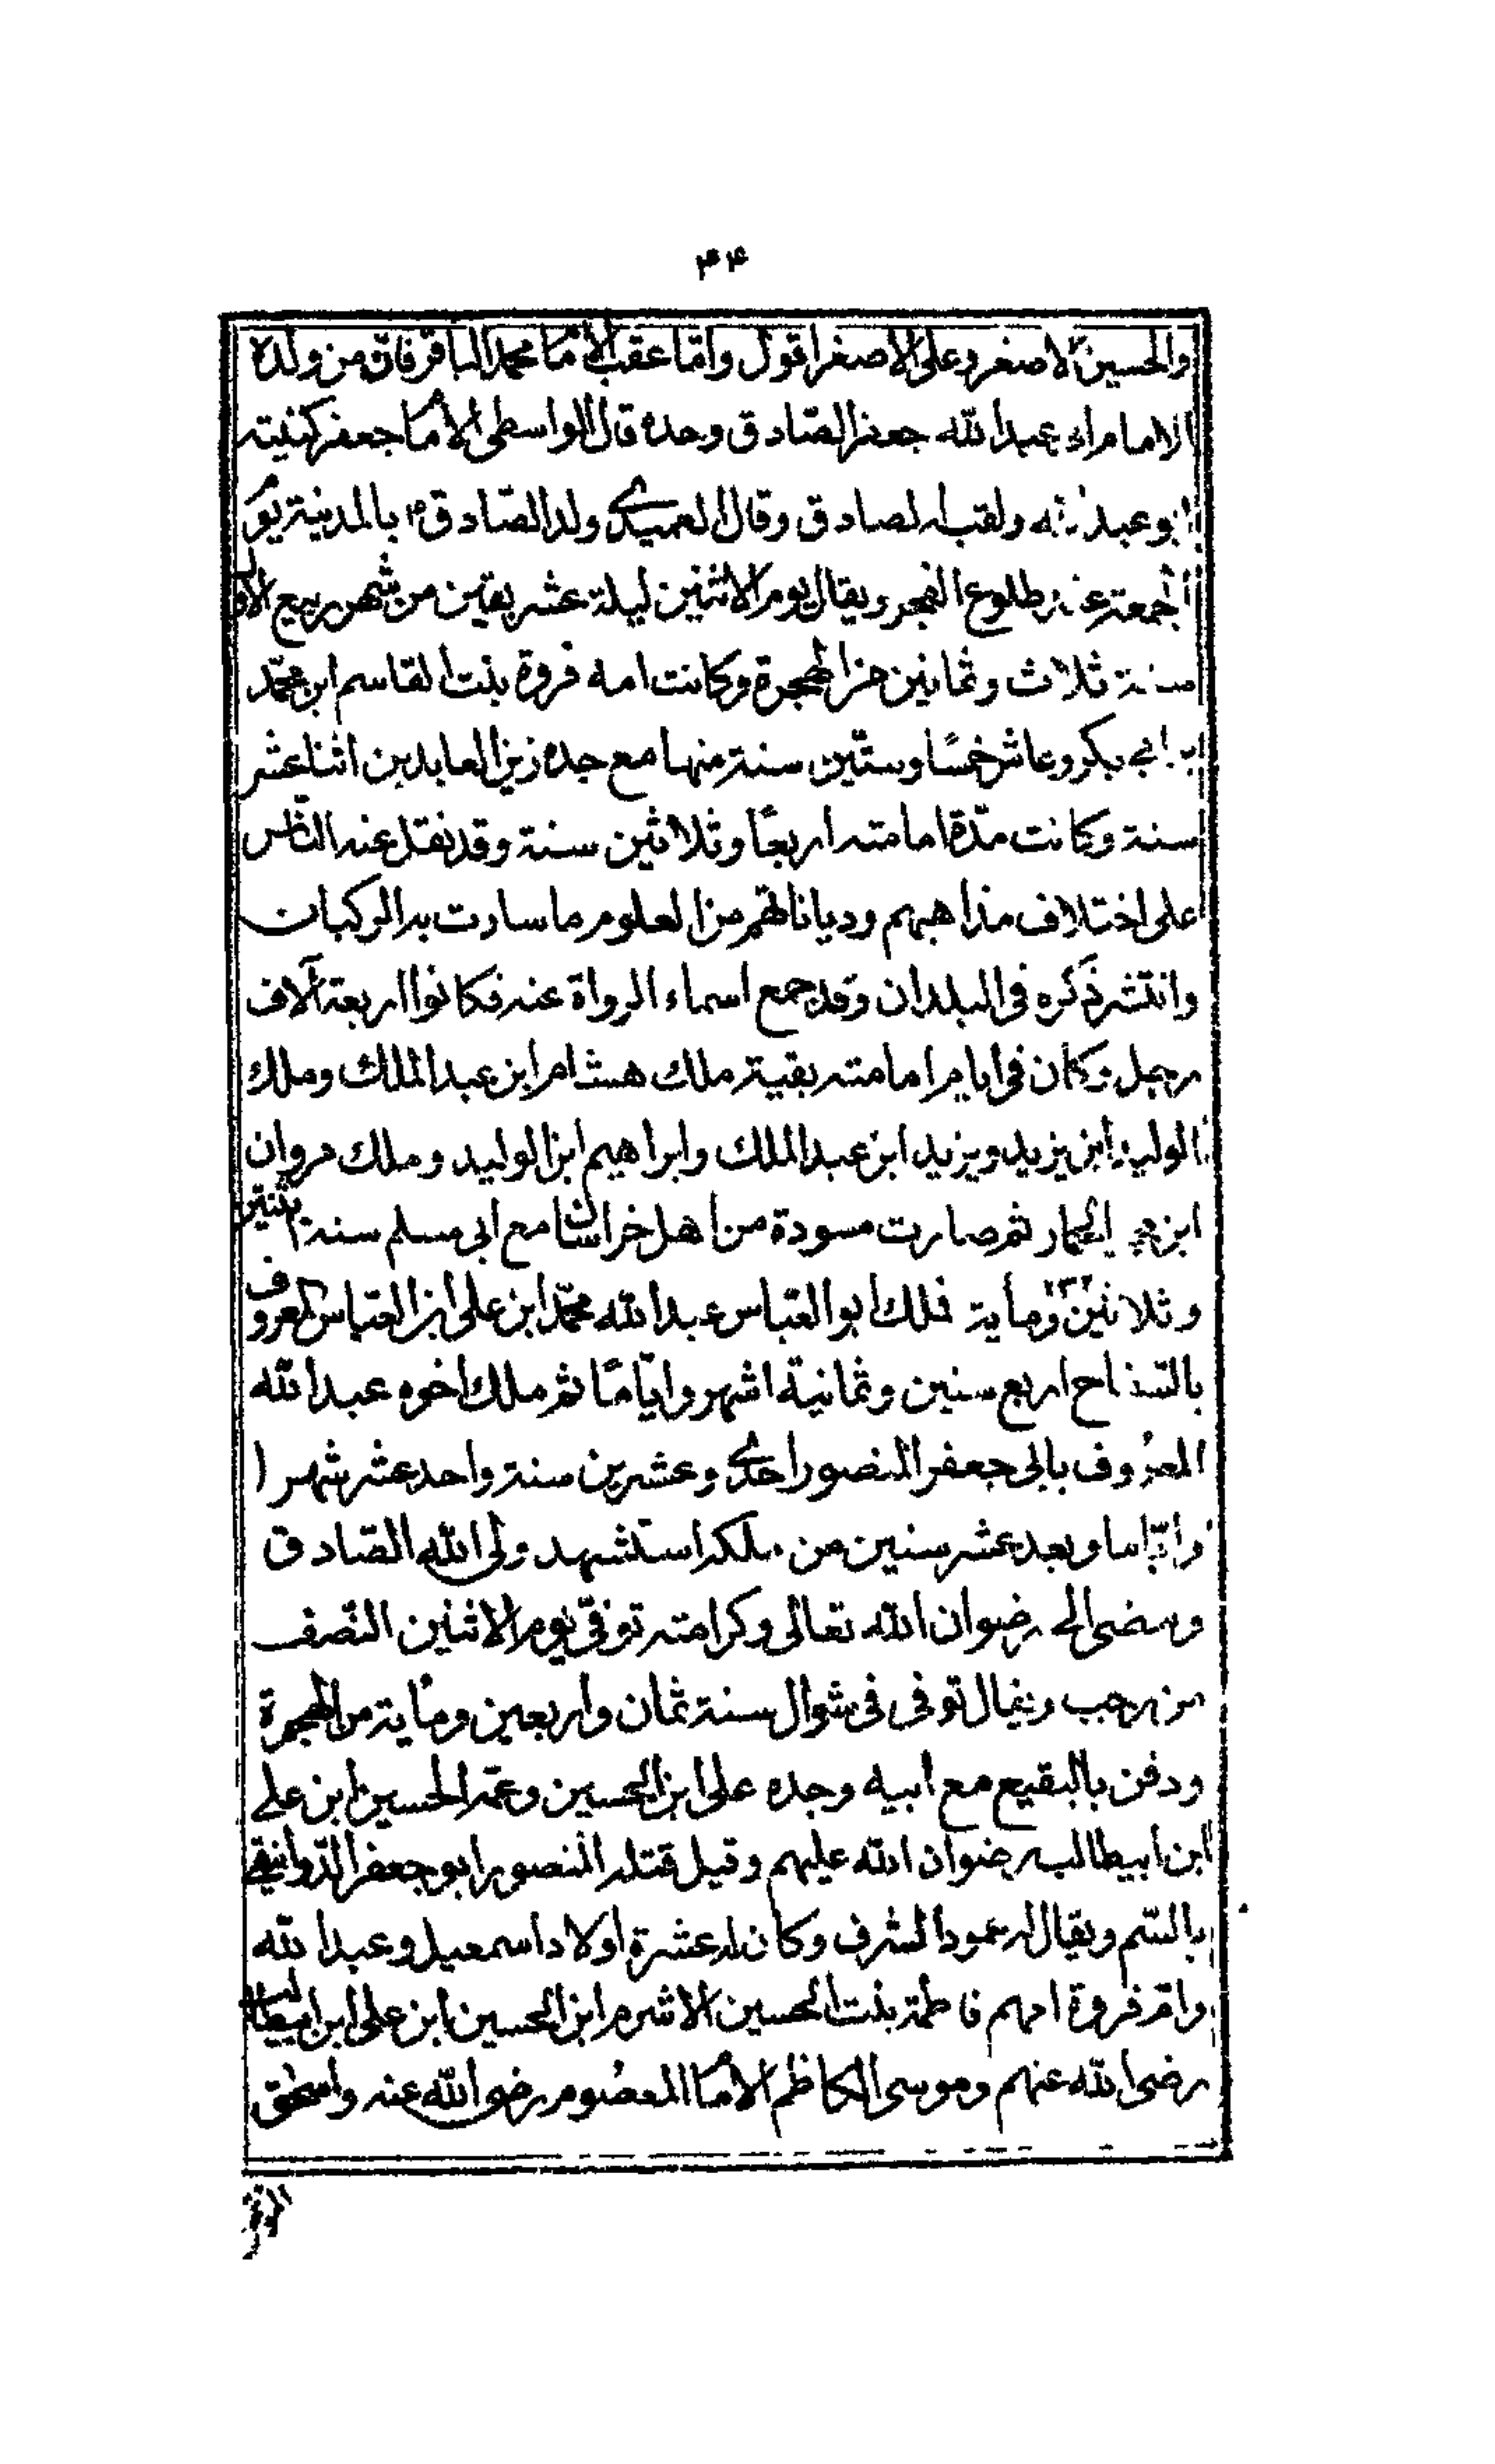 ۳۴
والحسين الاصغر وعلى الاصغر اقول واما عقب الامام محمد الباقر فان من ولده
الامام ابى عبد الله جعفر الصادق وحده قال الواسطى الامام جعفر كنيته
ابو عبد الله ولقبه الصادق وقال العميدى ولد الصادق ع بالمدينة يوم
الجمعة عند طلوع الفجر ويقال يوم الاثنين ليلة عشر بقين من شهر ربيع الاول
سنة ثلاث وثمانين من الهجرة وكانت امه فروة بنت القاسم ابن محمد
ابن ابى بكر وعاش خمسًا وستين سنة منها مع جده زين العابدين اثنا عشر
سنة وكانت مدة امامته اربعًا وثلاثين سنة وقد نقل عنه الناس
على اختلاف مذاهبهم وديانا تهم من العلوم ما سارت به الركبان
وانتشر ذكره فى البلدان وقد جمع اسماء الرواة عنه فكانوا اربعة آلاف
رجل وكان فى ايام امامته بقية ملك هشام ابن عبد الملك وملك
الوليد ابن يزيد ويزيد ابن عبد الملك وابراهيم ابن الوليد وملك مروان
ابن محمد الحمار ثم صارت مسودة من اهل خراسان مع ابى مسلم سنة اثنين
وثلاثين ۱۳۲ ومأية فملك ابو العباس عبد الله محمد ابن على ابن العباس المعروف
بالسفاح اربع سنين وثمانية اشهر وايامًا ثم ملك اخوه عبد الله
المعروف بابى جعفر المنصور احدى وعشرين سنة واحد عشر شهرا
واياما وبعد عشر سنين من ملكه استشهد ولى الله الصادق
ومضى الى رضوان الله تعالى وكرامته توفى يوم الاثنين النصف
من رجب ويقال توفى فى شوال سنة ثمان واربعين ومأية من الهجرة
ودفن بالبقيع مع ابيه وجده على ابن الحسين وعمه الحسين ابن على
ابن ابيطالب رضوان الله عليهم وقيل قتله المنصور ابو جعفر الدوانيقى
بالسم ويقال له عمود الشرف وكان له عشرة اولاد اسمعيل وعبد الله
وام فروة امهم فاطمة بنت الحسين الاثرم ابن الحسين ابن على ابن ابيطالب
رضى الله عنهم وموسى الكاظم الامام المعصوم رضى الله عنه واسحق